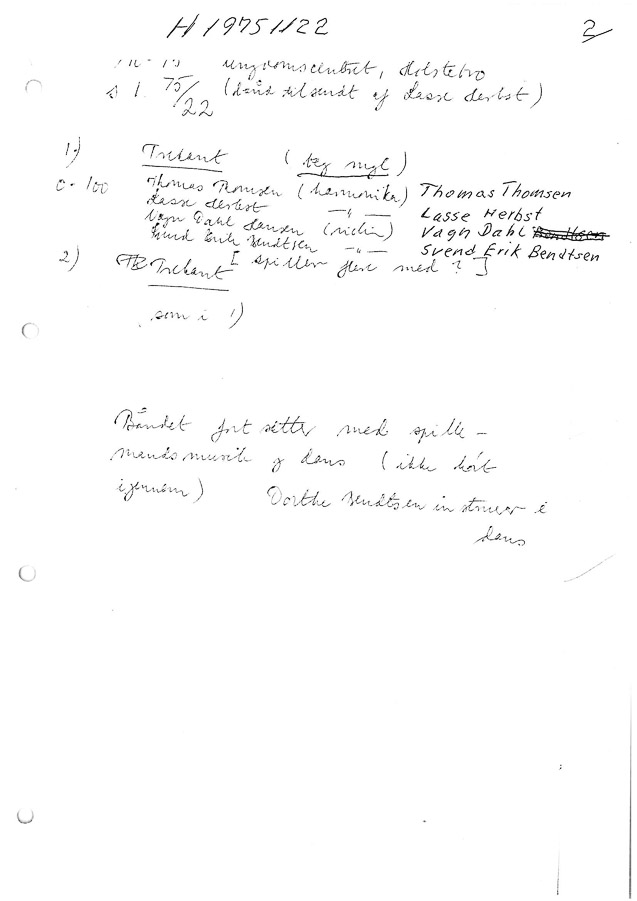 H 1975/1/22 2
ungdomscentret, Holstebro
s 1. 75/22 (bånd tilsendt af Lasse Herbst)
1) Trekant (beg mgl)
0-100 Thomas Thomsen (harmonika) Thomas Thomsen
Lasse Herbst —"— Lasse Herbst
Vagn Dahl Hansen (violin) Vagn Dahl
Svend Erik Bendtsen —"— Svend Erik Bendtsen
2) Trekant [spiller flere med?]
som i 1)
Båndet fortsætter med spille-
mandsmusik og dans (ikke hørt
igennem) Dorthe Bendtsen instruer i
dans